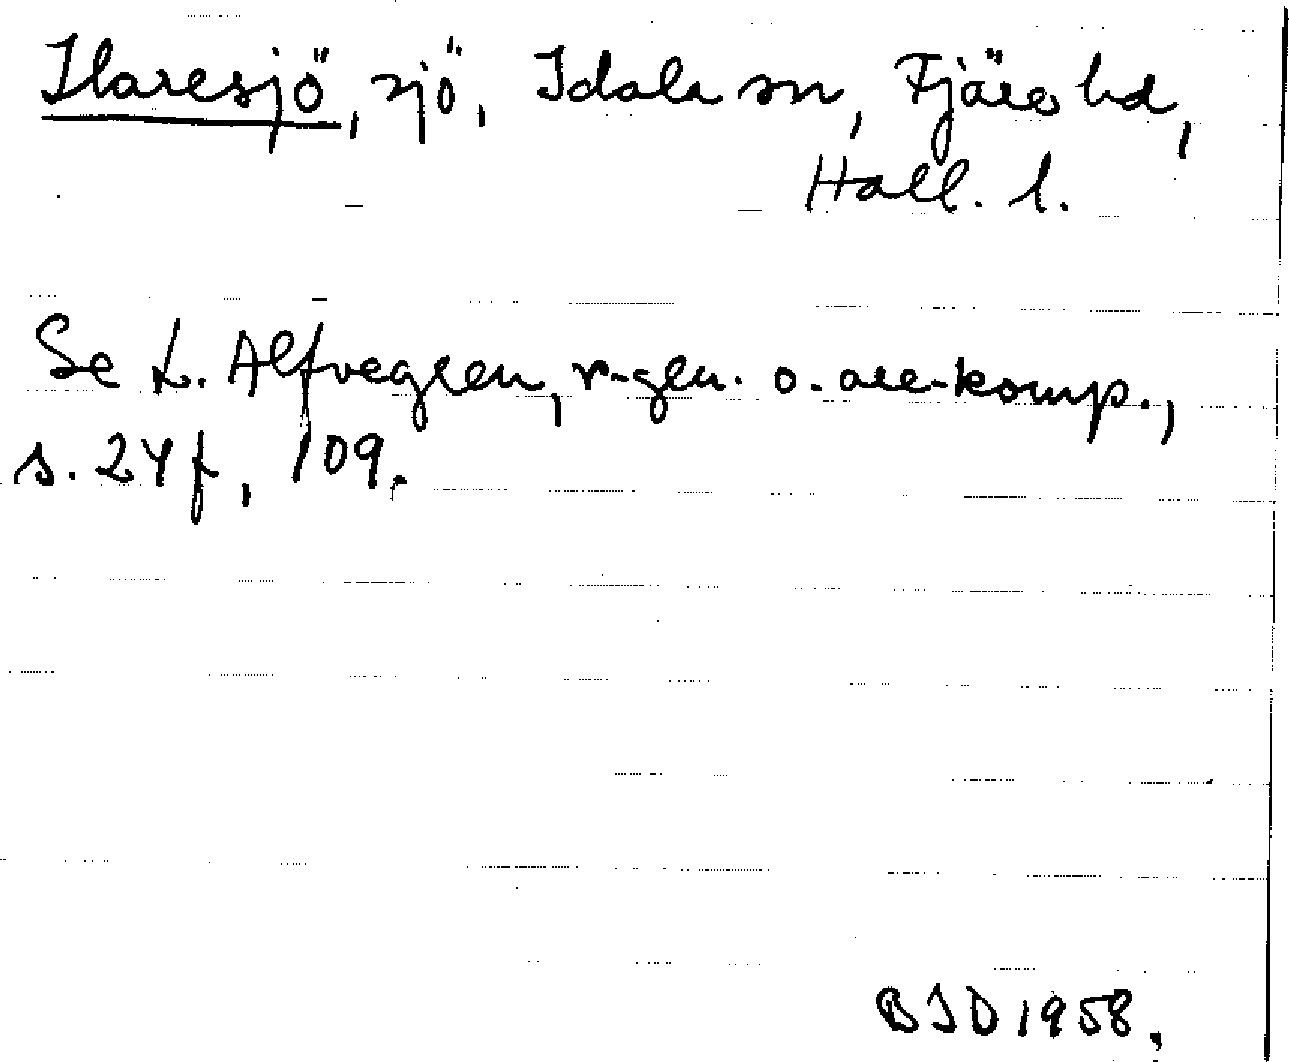 Ilaresjö, sjö, Idala sn, Fjäre hd,
Hall. l.
Se L. Alfvegren, r-gen. o. are-komp.,
s. 24 f, 109.
BID 1958.